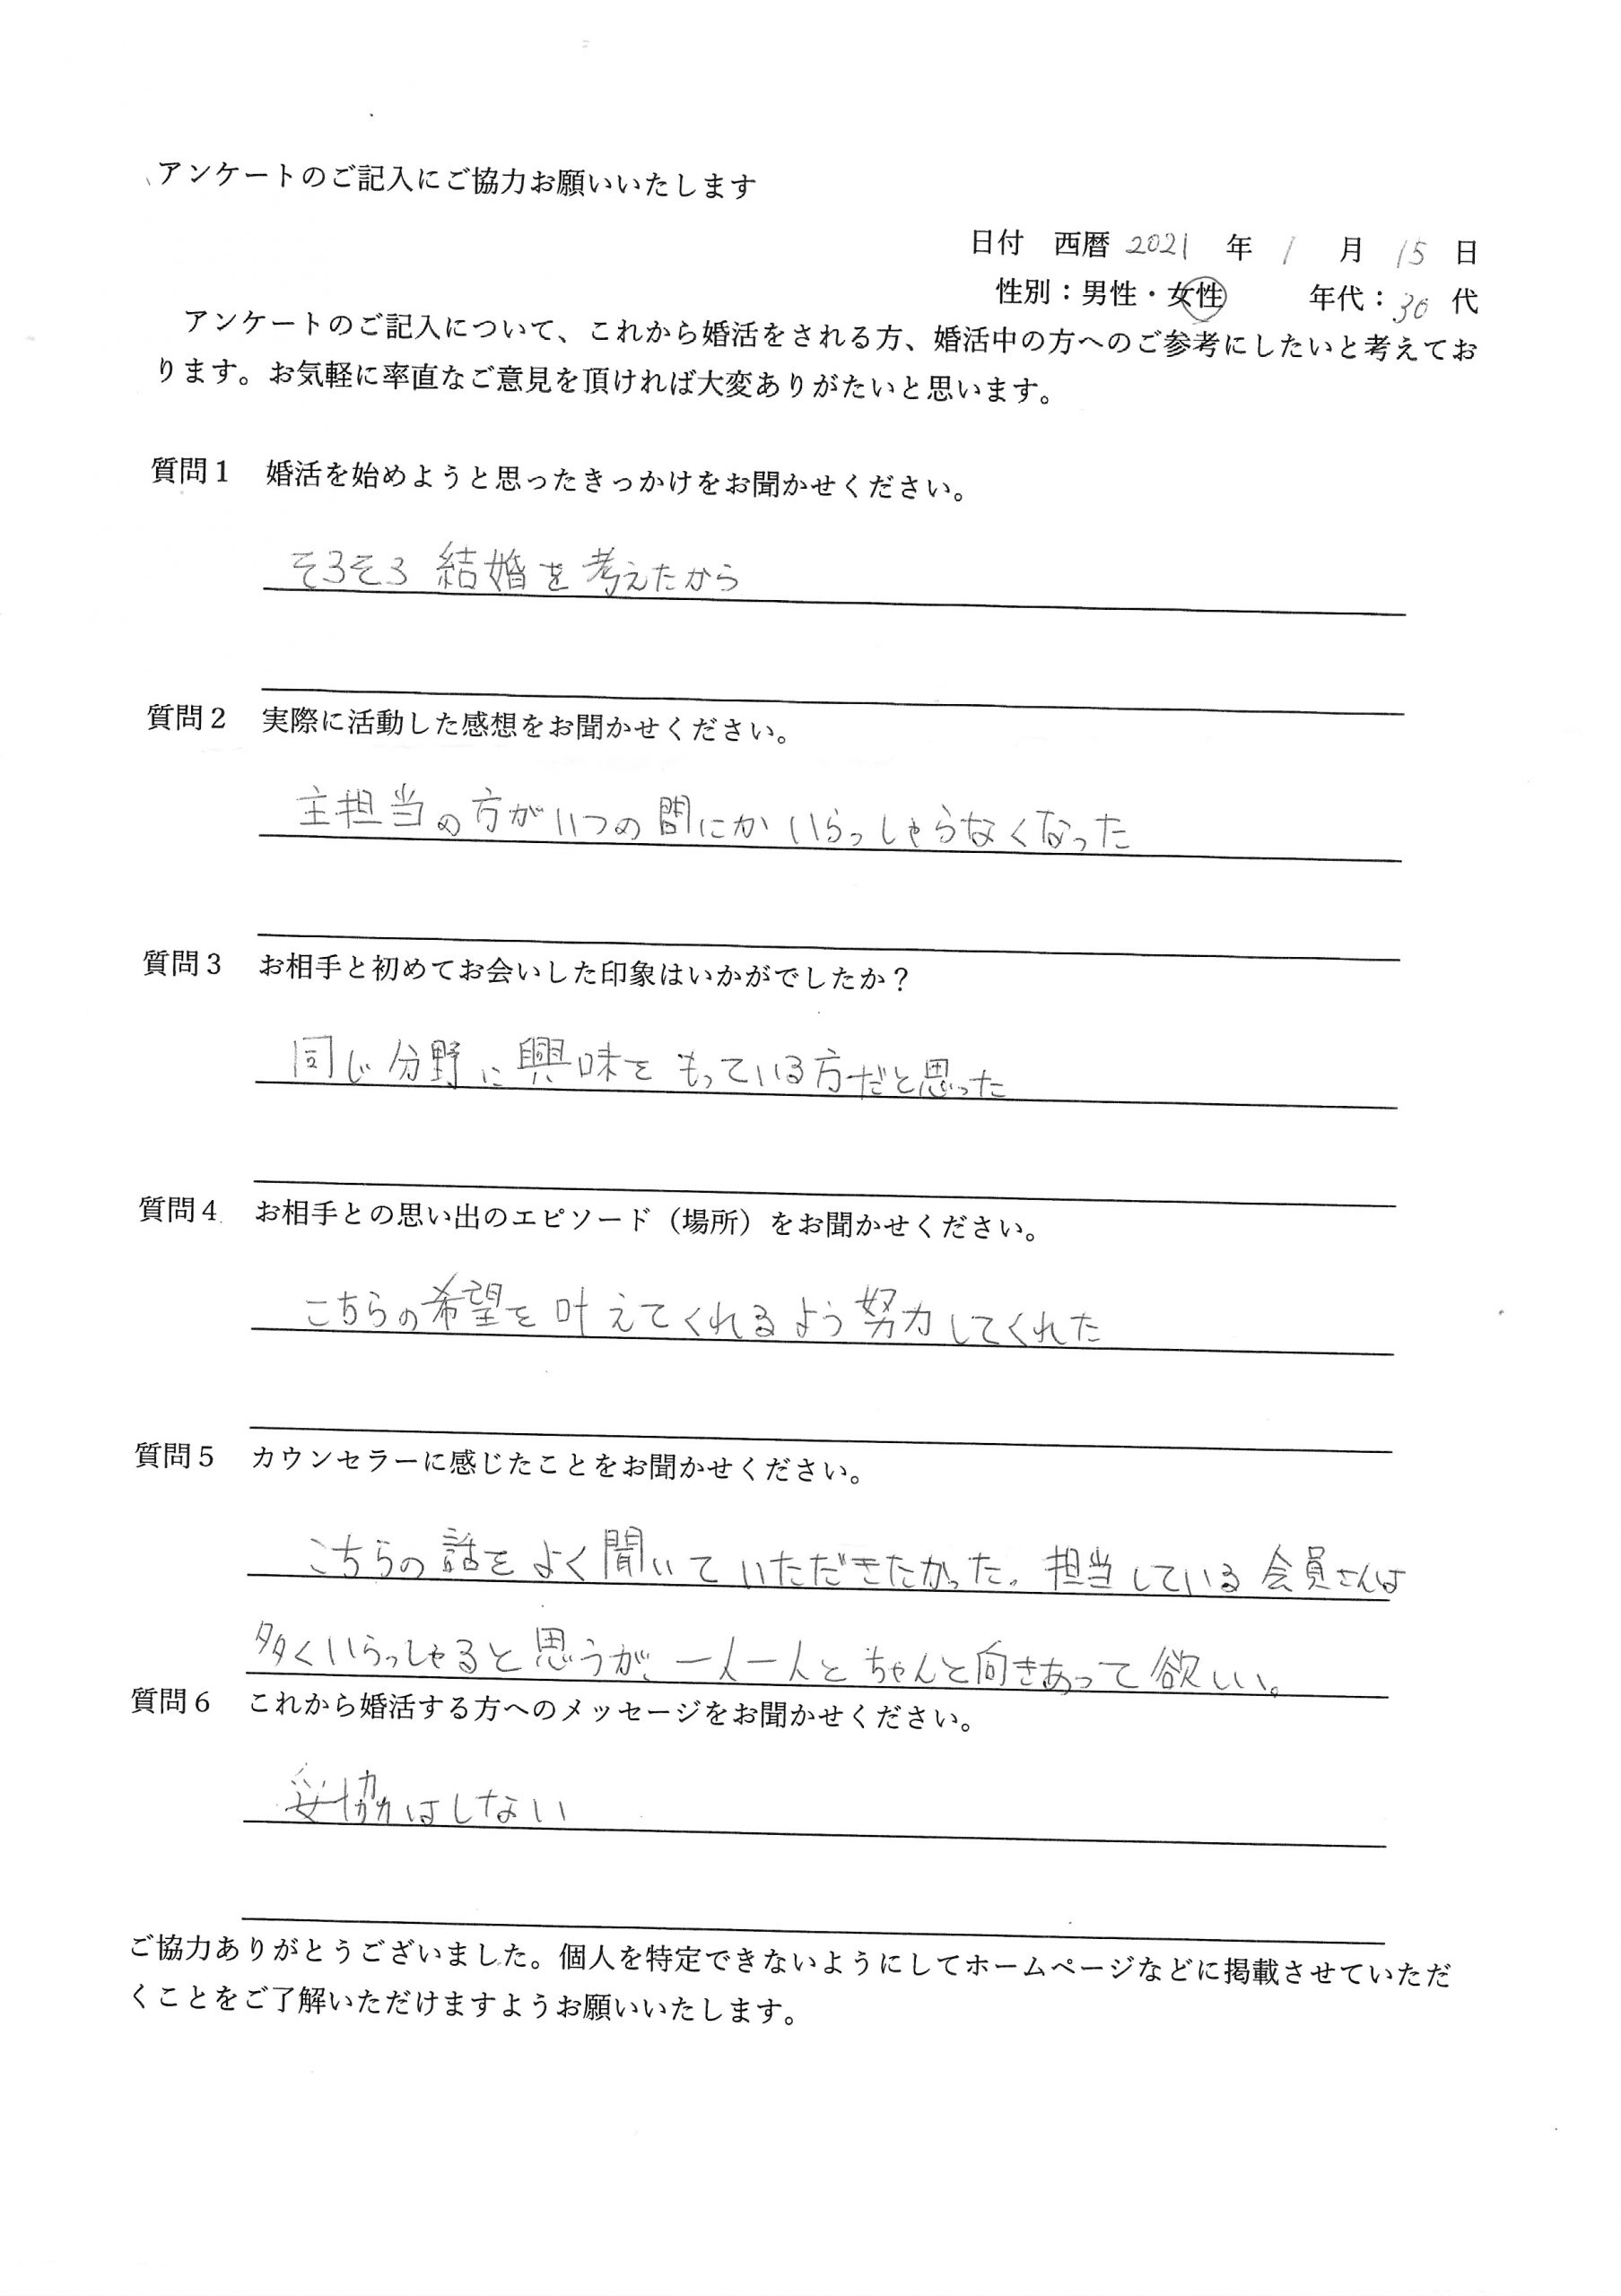 アンケートのご記入にご協力お願いいたします
日付　西暦 2021 年 1 月 15 日
性別：男性・女性　年代：30 代
アンケートのご記入について、これから婚活をされる方、婚活中の方へのご参考にしたいと考えてお
ります。お気軽に率直なご意見を頂ければ大変ありがたいと思います。
質問１　婚活を始めようと思ったきっかけをお聞かせください。
そろそろ結婚を考えたから
質問２　実際に活動した感想をお聞かせください。
主担当の方がいつの間にかいらっしゃらなくなった
質問３　お相手と初めてお会いした印象はいかがでしたか？
同じ分野に興味をもっている方だと思った
質問４　お相手との思い出のエピソード（場所）をお聞かせください。
こちらの希望を叶えてくれるよう努力してくれた
質問５　カウンセラーに感じたことをお聞かせください。
こちらの話をよく聞いていただきたかった。担当している会員さんは
多くいらっしゃると思うが、一人一人とちゃんと向きあって欲しい。
質問６　これから婚活する方へのメッセージをお聞かせください。
妥協はしない
ご協力ありがとうございました。個人を特定できないようにしてホームページなどに掲載させていただ
くことをご了解いただけますようお願いいたします。